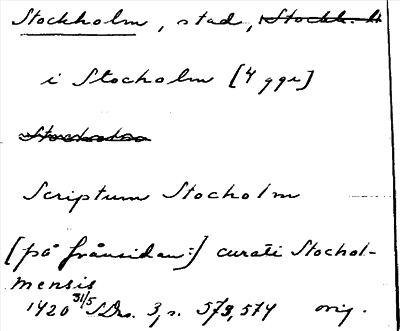 Stockholm, stad, Stockh. ll
i Stocholm [4 ggr]
Stocholm
Scriptum Stocholm
[på frånsidan:] curati Stochol-
mensis
1420 31/5 SDns. 3, s. 573, 574 orig.